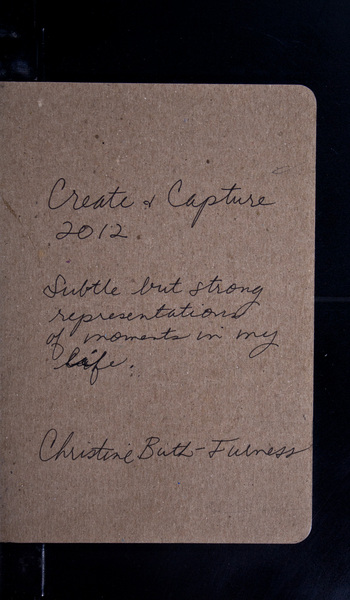 Create & Capture
2012.
Subtle but strong
representations
of moments in my
life.
Christine Buth-Furness